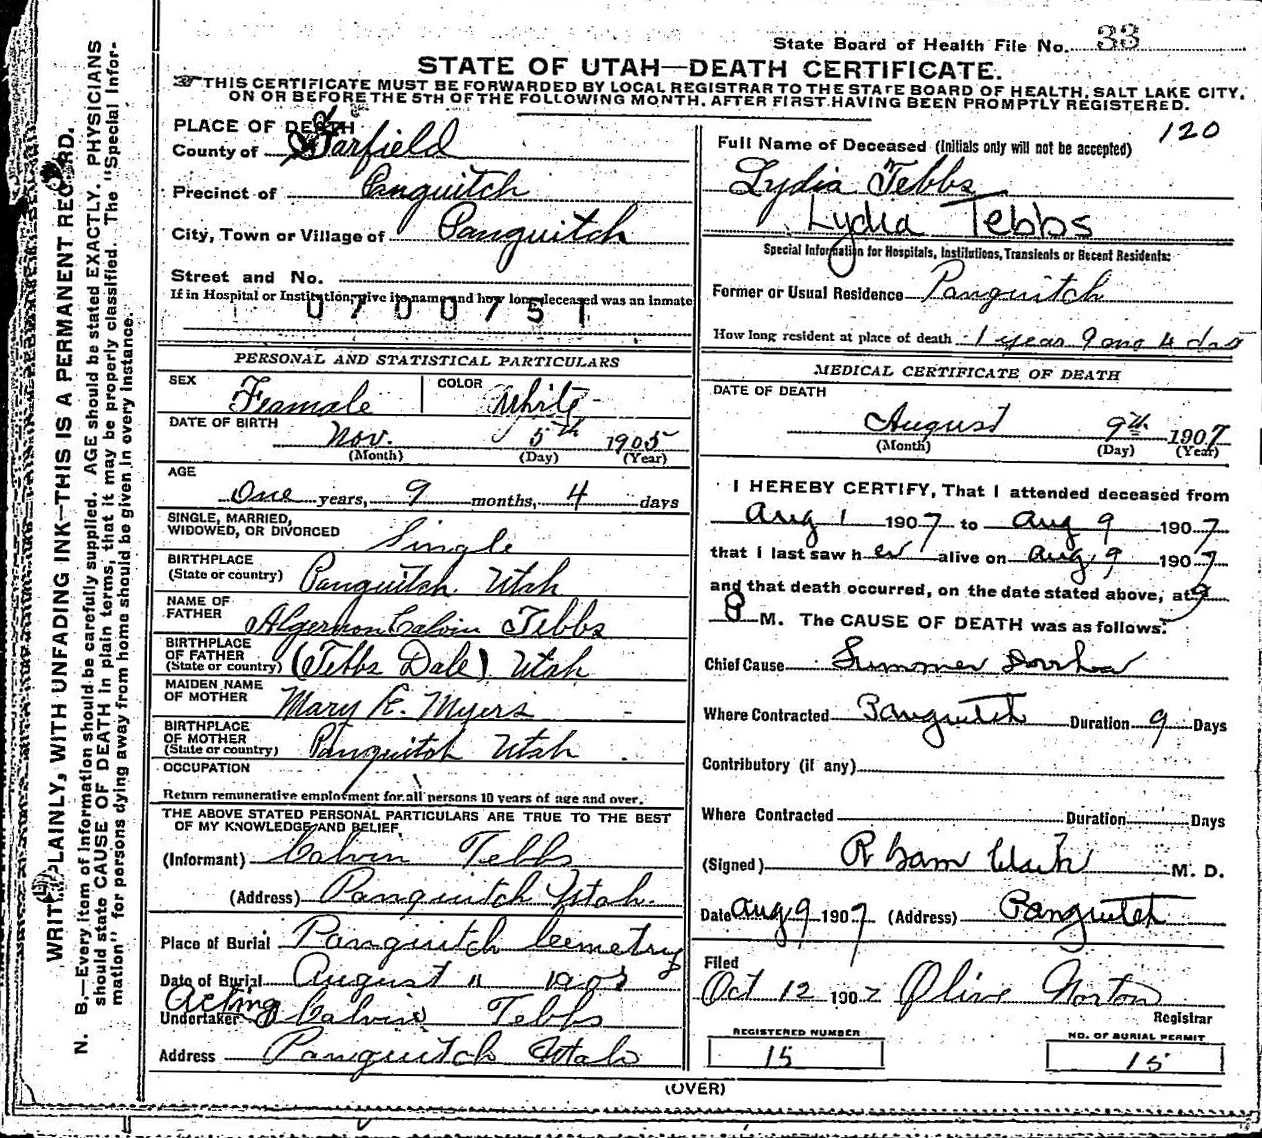 State Board of Health File No. 33
STATE OF UTAH—DEATH CERTIFICATE.
☞THIS CERTIFICATE MUST BE FORWARDED BY LOCAL REGISTRAR TO THE STATE BOARD OF HEALTH, SALT LAKE CITY,
ON OR BEFORE THE 5TH OF THE FOLLOWING MONTH. AFTER FIRST HAVING BEEN PROMPTLY REGISTERED.
WRITE PLAINLY, WITH UNFADING INK—THIS IS A PERMANENT RECORD.
N. B.—Every item of information should be carefully supplied. AGE should be stated EXACTLY. PHYSICIANS
should state CAUSE OF DEATH in plain terms, that it may be properly classified. The "Special Infor-
mation" for persons dying away from home should be given in every instance.
PLACE OF DEATH
County of Garfield
Precinct of Panguitch
City, Town or Village of Panguitch
Street and No.
If in Hospital or Institution, give its name and how long deceased was an inmate
0700751
PERSONAL AND STATISTICAL PARTICULARS
SEX Feamale COLOR White
DATE OF BIRTH Nov. 5th 1905
(Month) (Day) (Year)
AGE
One years, 9 months, 4 days
SINGLE, MARRIED,
WIDOWED, OR DIVORCED Single
BIRTHPLACE
(State or country) Panguitch Utah
NAME OF
FATHER Algernon Calvin Tebbs
BIRTHPLACE
OF FATHER
(State or country) (Tebbs Dale) Utah
MAIDEN NAME
OF MOTHER Mary E. Myers
BIRTHPLACE
OF MOTHER
(State or country) Panguitch Utah
OCCUPATION
Return remunerative employment for all persons 10 years of age and over.
THE ABOVE STATED PERSONAL PARTICULARS ARE TRUE TO THE BEST
OF MY KNOWLEDGE AND BELIEF
(Informant) Calvin Tebbs
(Address) Panguitch Utah.
Place of Burial Panguitch Cemetry
Date of Burial August 11
Acting
Undertaker Calvin Tebbs
Address Panguitch Utah
120
Full Name of Deceased (Initials only will not be accepted)
Lydia Tebbs
Lydia Tebbs
Special Information for Hospitals, Institutions, Transients or Recent Residents:
Former or Usual Residence Panguitch
How long resident at place of death 1 year 9 mo 4 das
MEDICAL CERTIFICATE OF DEATH
DATE OF DEATH
August 9th 1907
(Month) (Day) (Year)
I HEREBY CERTIFY, That I attended deceased from
Aug 1 1907 to Aug 9 1907
that I last saw her alive on Aug. 9 1907
and that death occurred, on the date stated above, at 9
P M. The CAUSE OF DEATH was as follows:
Chief Cause Summer
Where Contracted Panguitch Duration 9 Days
Contributory (if any)
Where Contracted Duration Days
(Signed) M. D.
Date Aug 9 1907 (Address) Panguitch
Filed
Oct 12 1907 Olive Norton
Registrar
REGISTERED NUMBER
15
NO. OF BURIAL PERMIT
15
(OVER)